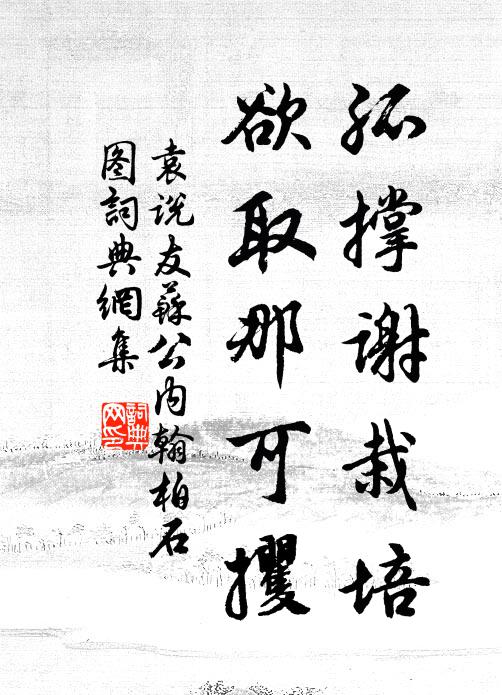 孤撑谢栽培
欲取那可攫
袁说友蘇公内翰柏石
图詞典網集
詞典网印